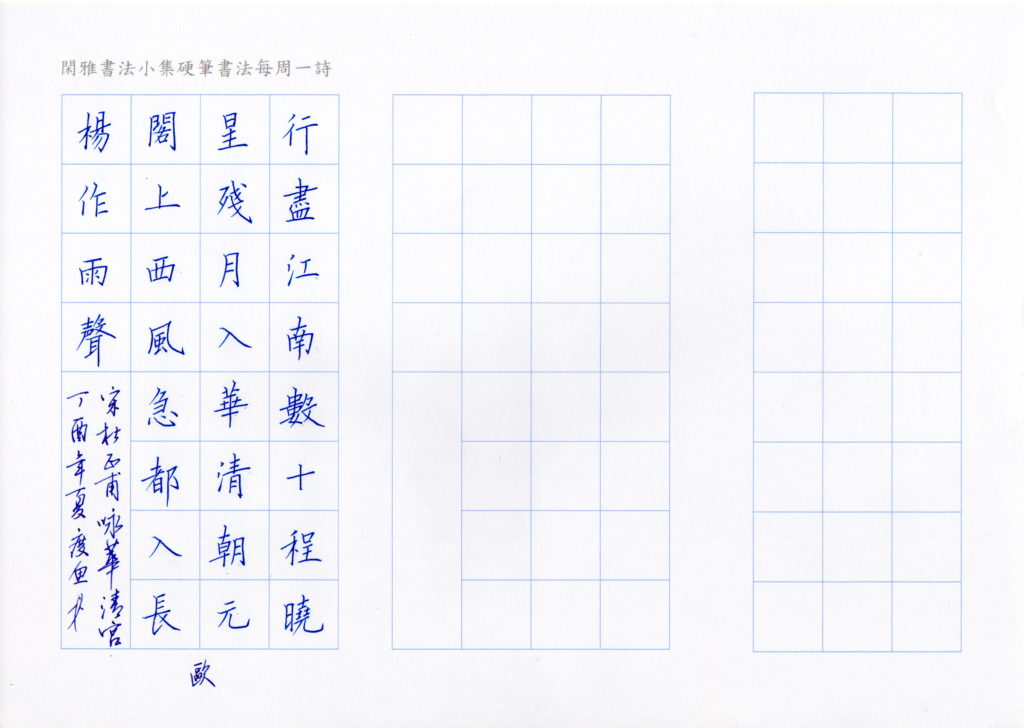 閑雅書法小集硬筆書法每周一詩
行盡江南數十程曉
星殘月入華清朝元
閣上西風急都入長
楊作雨聲
宋杜正甫咏華清宮
丁酉年夏度魚书
歐